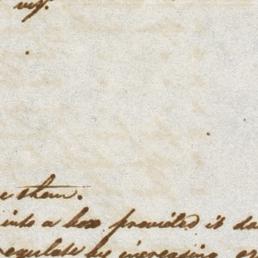 viz.
them.
into a box provided it do
regulate by increasing or